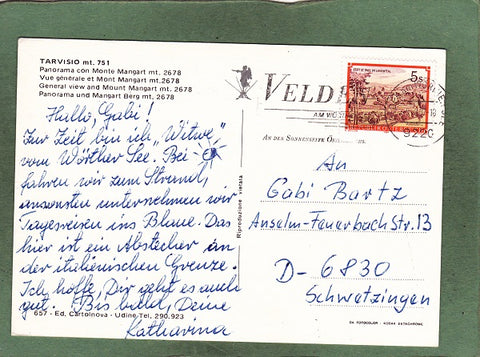 TARVISIO mt. 751
Panorama con Monte Mangart mt. 2678
Vue générale et Mont Mangart mt. 2678
General view and Mount Mangart mt. 2678
Panorama und Mangart Berg mt. 2678
Hallo, Gabi!
Zur Zeit bin ich „Witwe"
vom Wörther See. Bei
fahren wir zum Strand,
ansonsten unternehmen wir
Tagesreisen ins Blaue. Das
hier ist ein Abstecher an
der italienischen Grenze.
Ich hoffe, Dir geht es auch
gut. Bis bald, Deine
Katharina
657 - Ed. Cartolnova - Udine Tel. 290.923
Riproduzione vietata
VELD
AM
AN DER SONNENSEITE
5 S
9220
An
Gabi Bartz
Anselm-Feuerbach Str. 13
D - 6830
Schwetzingen